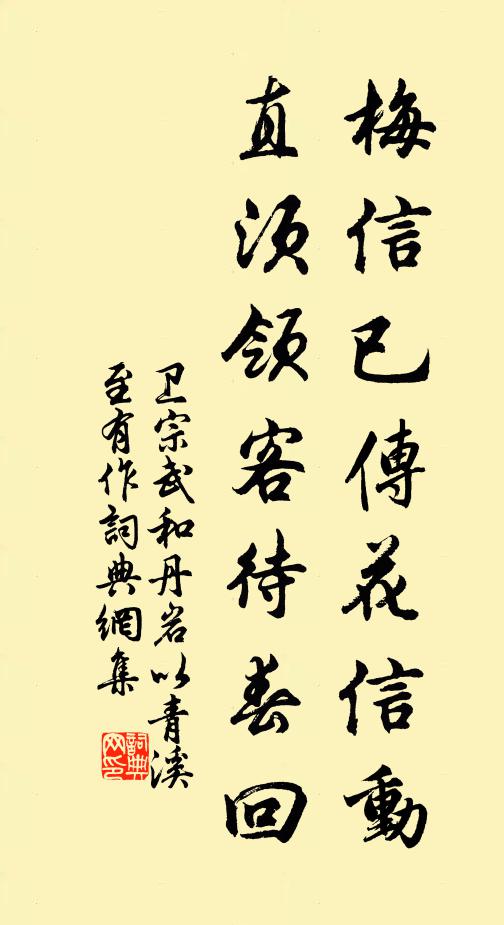 梅信已傳花信動
直須領客待春回
卫宗武和丹岩以青溪
至有作詞典網集
詞典网印